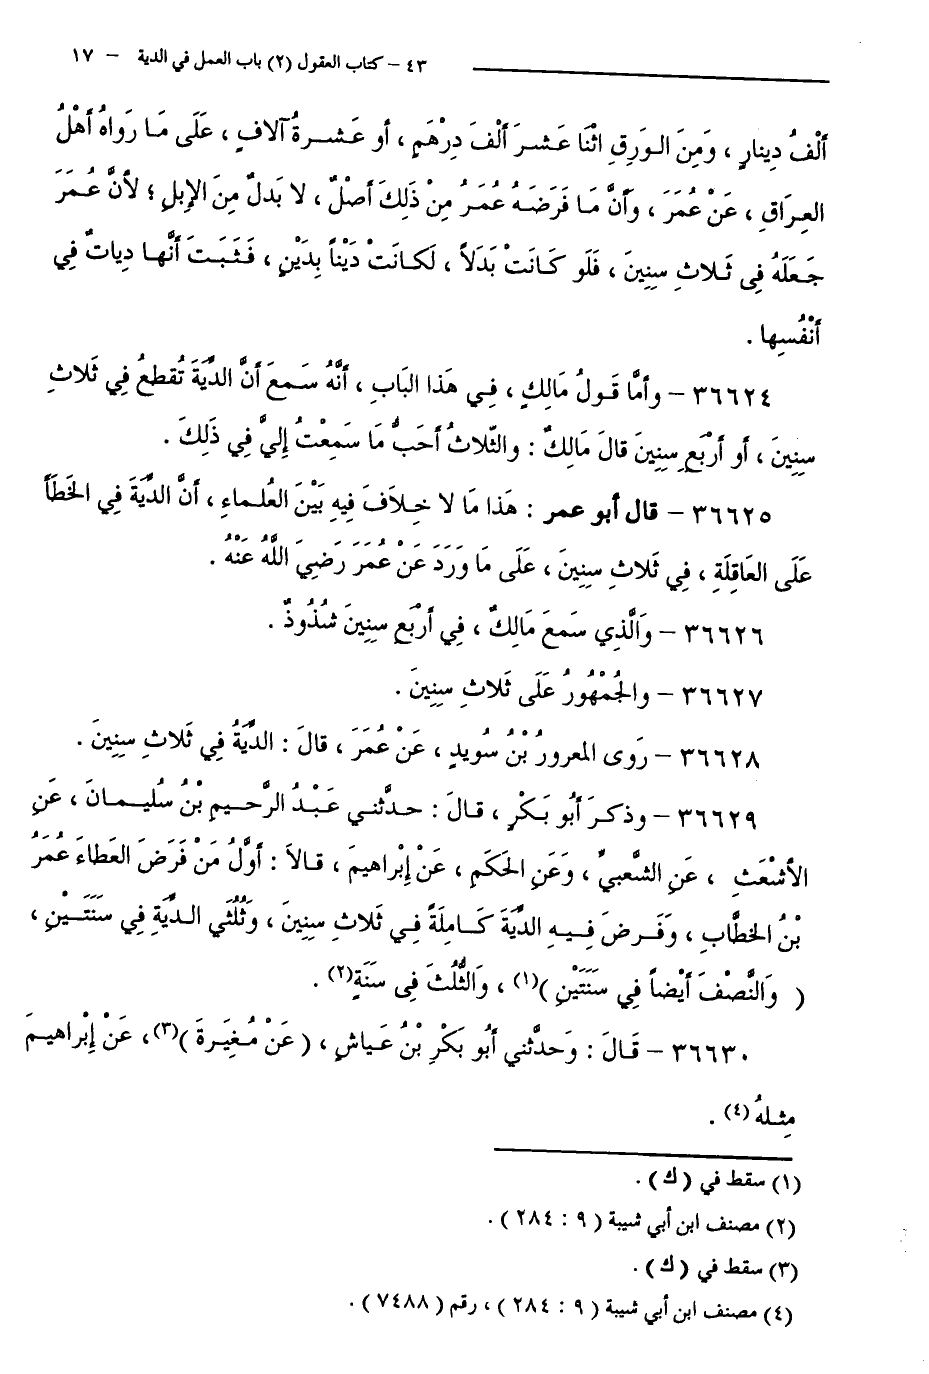 ٤٣ – كتاب العقول (٢) باب العمل في الدية – ١٧
أَلْفُ دِينارٍ ، وَمِنَ الورِقِ اثْنَا عَشرَ أَلْفَ دِرْهَمٍ ، أو عَشرةُ آلافٍ ، عَلَى مَا رَواهُ أَهْلُ
العِرَاقِ ، عَنْ عُمَرَ ، وأَنَّ مَا فَرَضَهُ عُمَرُ مِنْ ذَلِكَ أَصْلٌ ، لا بَدلٌ مِنَ الإِبلِ ؛ لأنَّ عُمَرَ
جَعَلَهُ فِي ثَلاثِ سِنِينَ ، فَلَو كَانَتْ بَدَلاً ، لَكانَتْ دَيْناً بِدَيْنٍ ، فَثَبَتَ أَنَّها دِياتٌ فِي
أَنْفُسِها .
٣٦٦٢٤ – وأَمَّا قَولُ مَالِكٍ ، فِي هَذا البَابِ ، أَنَّهُ سَمعَ أَنَّ الدِّيَةَ تُقطعُ فِي ثَلاثِ
سِنِينَ ، أو أَرْبَعِ سِنِينَ قالَ مَالِكٌ : والثّلاثُ أَحَبُّ مَا سَمِعْتُ إِليَّ فِي ذَلِكَ .
٣٦٦٢٥ – قال أبو عمر : هَذا مَا لا خِلافَ فِيهِ بَيْنَ العُلماءِ ، أَنَّ الدِّيَةَ فِي الخَطَأ
عَلَى العَاقِلَةِ ، فِي ثَلاثِ سِنِينَ ، عَلَى مَا وَرَدَ عَنْ عُمَرَ رَضِيَ اللَّهُ عَنْهُ .
٣٦٦٢٦ – وَالَّذِي سَمعَ مَالِكٌ ، فِي أَرْبَعِ سِنِينَ شُذُوذٌ .
٣٦٦٢٧ – والجُمْهُورُ عَلَى ثَلاثِ سِنِينَ .
٣٦٦٢٨ – رَوى المعرورُ بْنُ سُويدٍ ، عَنْ عُمَرَ ، قالَ : الدِّيَةُ فِي ثَلاثِ سِنِينَ .
٣٦٦٢٩ – وذكرَ أَبُو بَكْرٍ ، قالَ : حدَّثني عَبْدُ الرَّحيمِ بْنُ سُليمانَ ، عَنِ
الأَشْعَثِ ، عَنِ الشَّعبيِّ ، وَعَنِ الحَكَمِ ، عَنْ إِبْراهيمَ ، قالاَ : أَوَّلُ مَنْ فَرَضَ العَطاءَ عُمَرُ
بْنُ الخطَّابِ ، وَفَرضَ فِيهِ الدِّيَةَ كَامِلَةً فِي ثَلاثِ سِنِينَ ، وَثُلُثَي الدِّيَةِ فِي سَنَتَيْنِ ،
( وَالنِّصْفَ أَيْضاً فِي سَنَتَيْنِ )(١) ، وَالثُّلُثَ فِي سَنَةٍ(٢) .
٣٦٦٣٠ – قَالَ : وَحدَّثني أَبُو بَكْرِ بْنُ عَياشٍ ، ( عَنْ مُغِيَرةَ )(٣)، عَنْ إِبْراهيمَ
مِثلهُ (٤) .
(١) سقط في ( ك ) .
(٢) مصنف ابن أبي شيبة ( ٩ : ٢٨٤ ) .
(٣) سقط في ( ك ) .
(٤) مصنف ابن أبي شيبة ( ٩ : ٢٨٤ ) ، رقم ( ٧٤٨٨ ) .